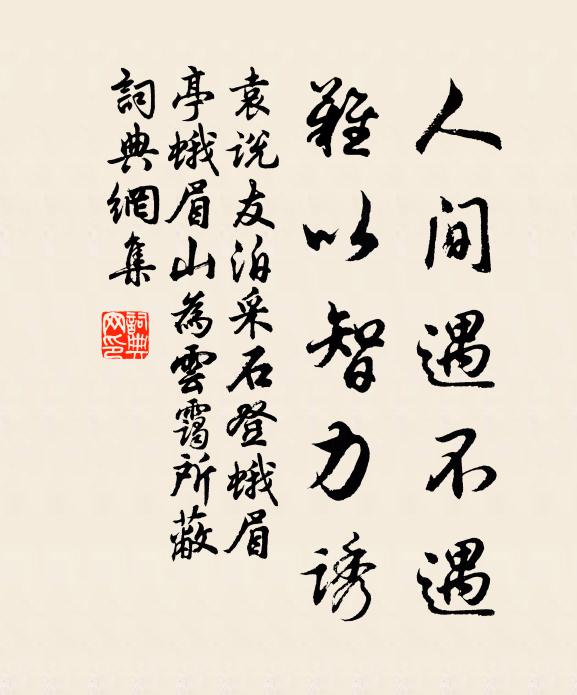 人间遇不遇
難以智力诱
袁说友泊采石登蛾眉
亭蛾眉山為雲靄所蔽
詞典網集
詞典
网印